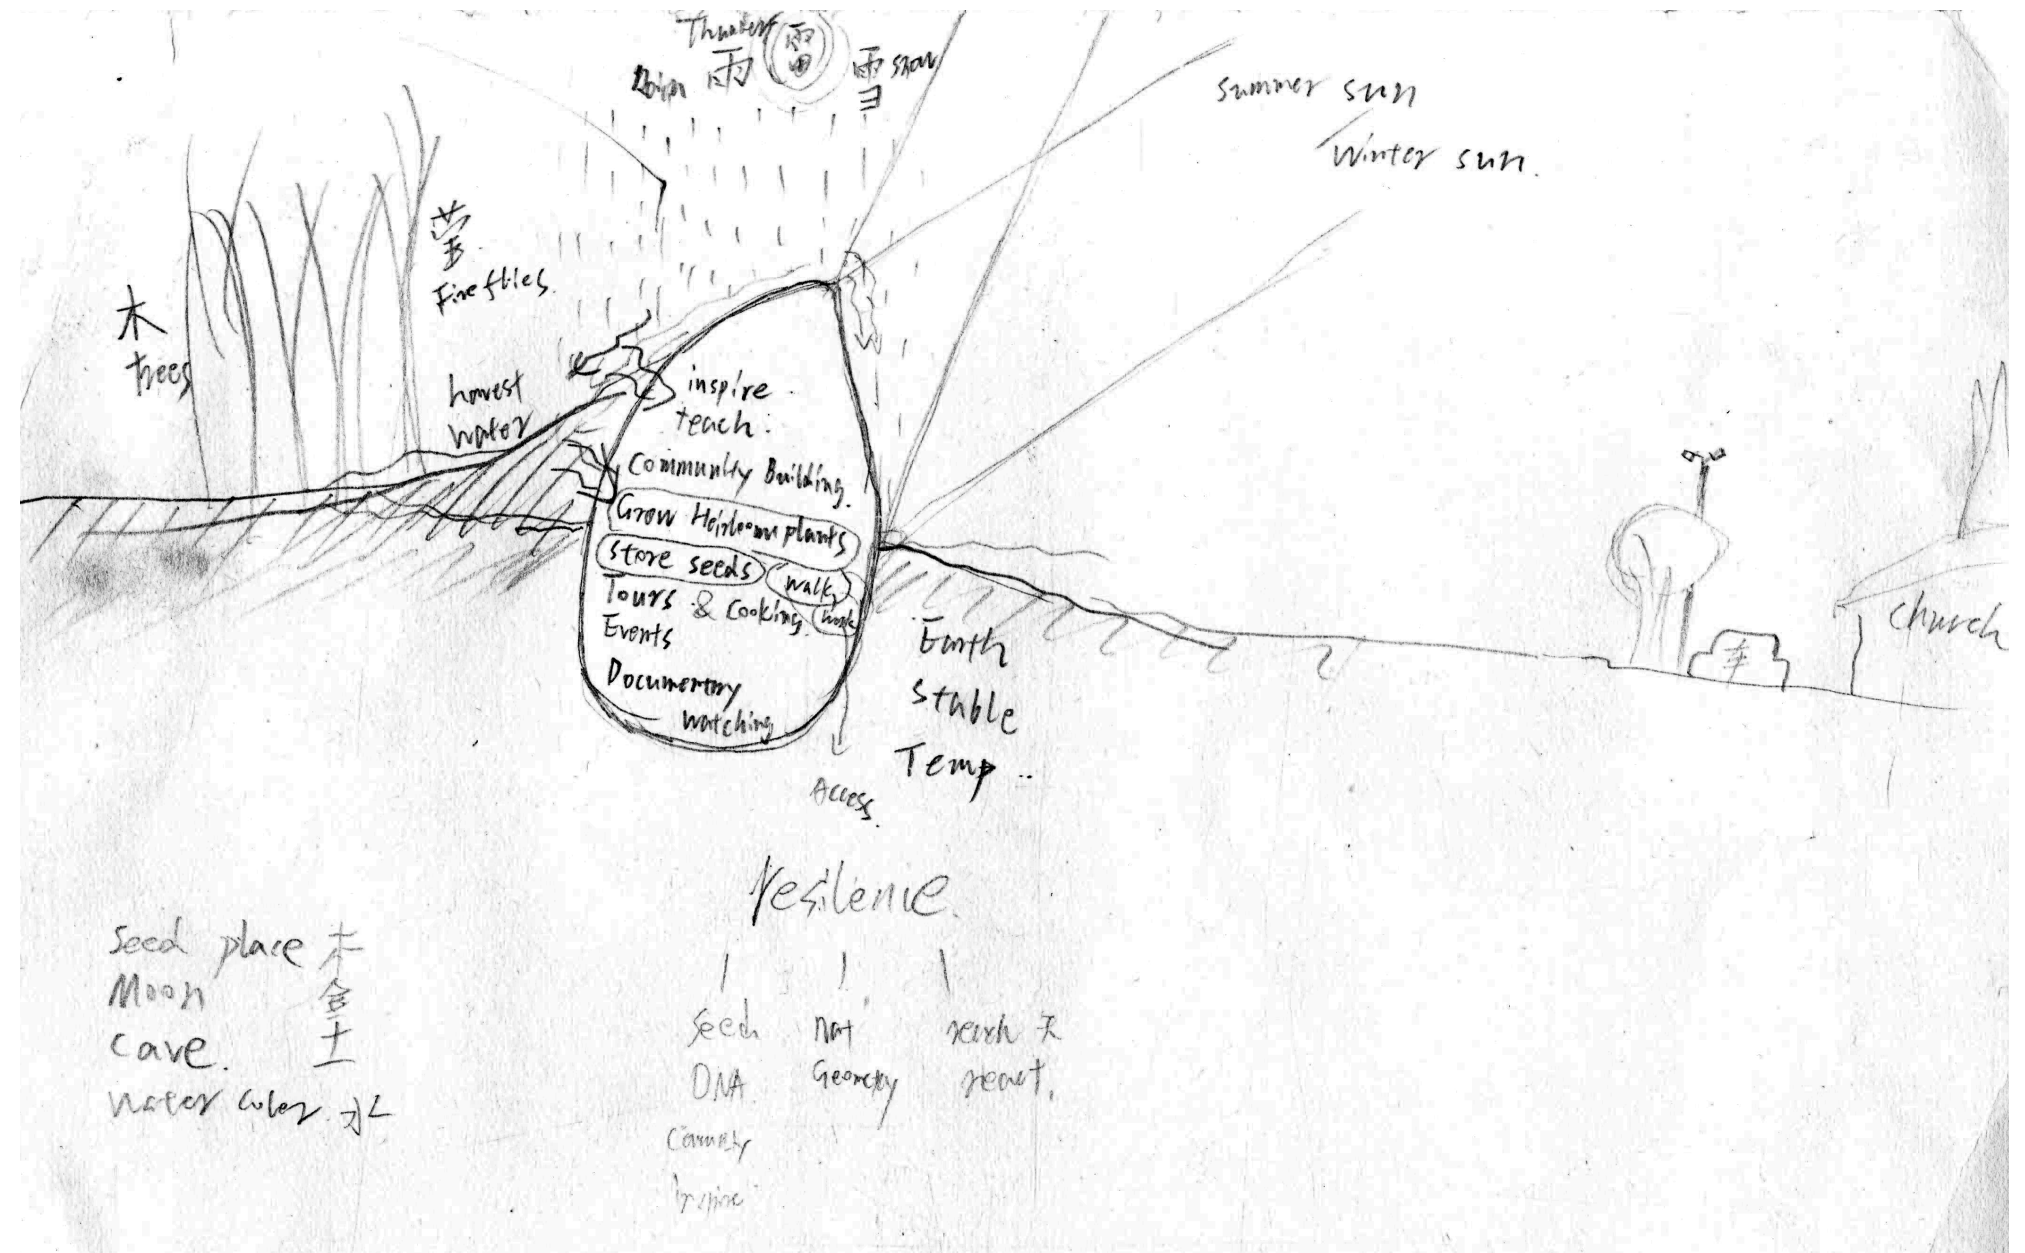 Thunder 雷
Rain 雨
雪 snow
summer sun
Winter sun.
螢
Fireflies.
木
trees
harvest
water
inspire
teach.
Community Building.
Grow Heirloom plants
store seeds
walk
work
Tours & cooking
Events
Documentary
watching
Earth
Stable
Temp ..
Access.
church
车
resilence
seed place 木
Moon 金
cave. 土
water color 水
Seed
DNA
Inspire
Nat
Geometry
天
react.